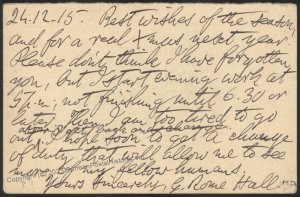 24-12-15. Best wishes of the season,
and for a real Xmas next year
Please don't think I have forgotten
you, but I start evening work at
p.m., not finishing until 6.30 or
later. Then I am too tired to go
out. I hope soon to get a change
of duty that will allow me to see
more of my fellow humans.
Yours Sincerely, G. Rome Hall.